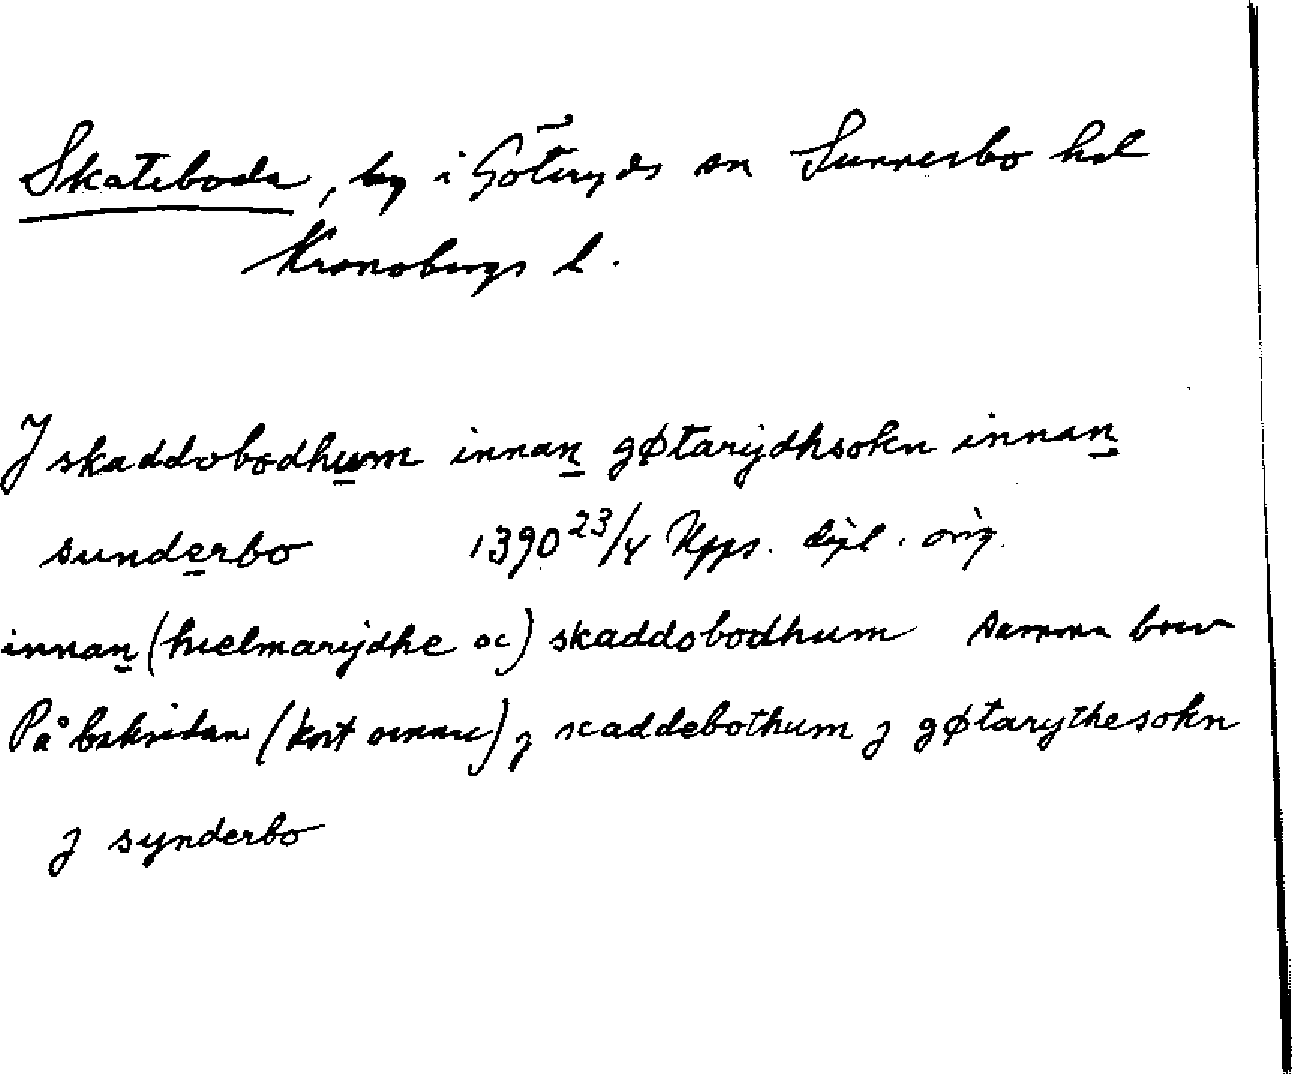 Skateboda, by i Göteryds sn Sunnerbo hd
Kronobergs l.
J skaddobodhum innan gøtarijdhsokn innan
sunderbo 1390 23/4 Upps. dipl. orig.
innan (hielmarijdhe oc) skaddobodhum samma brev
På baksidan (kort senare) j scaddebothum j gøtarythesokn
j synderbo